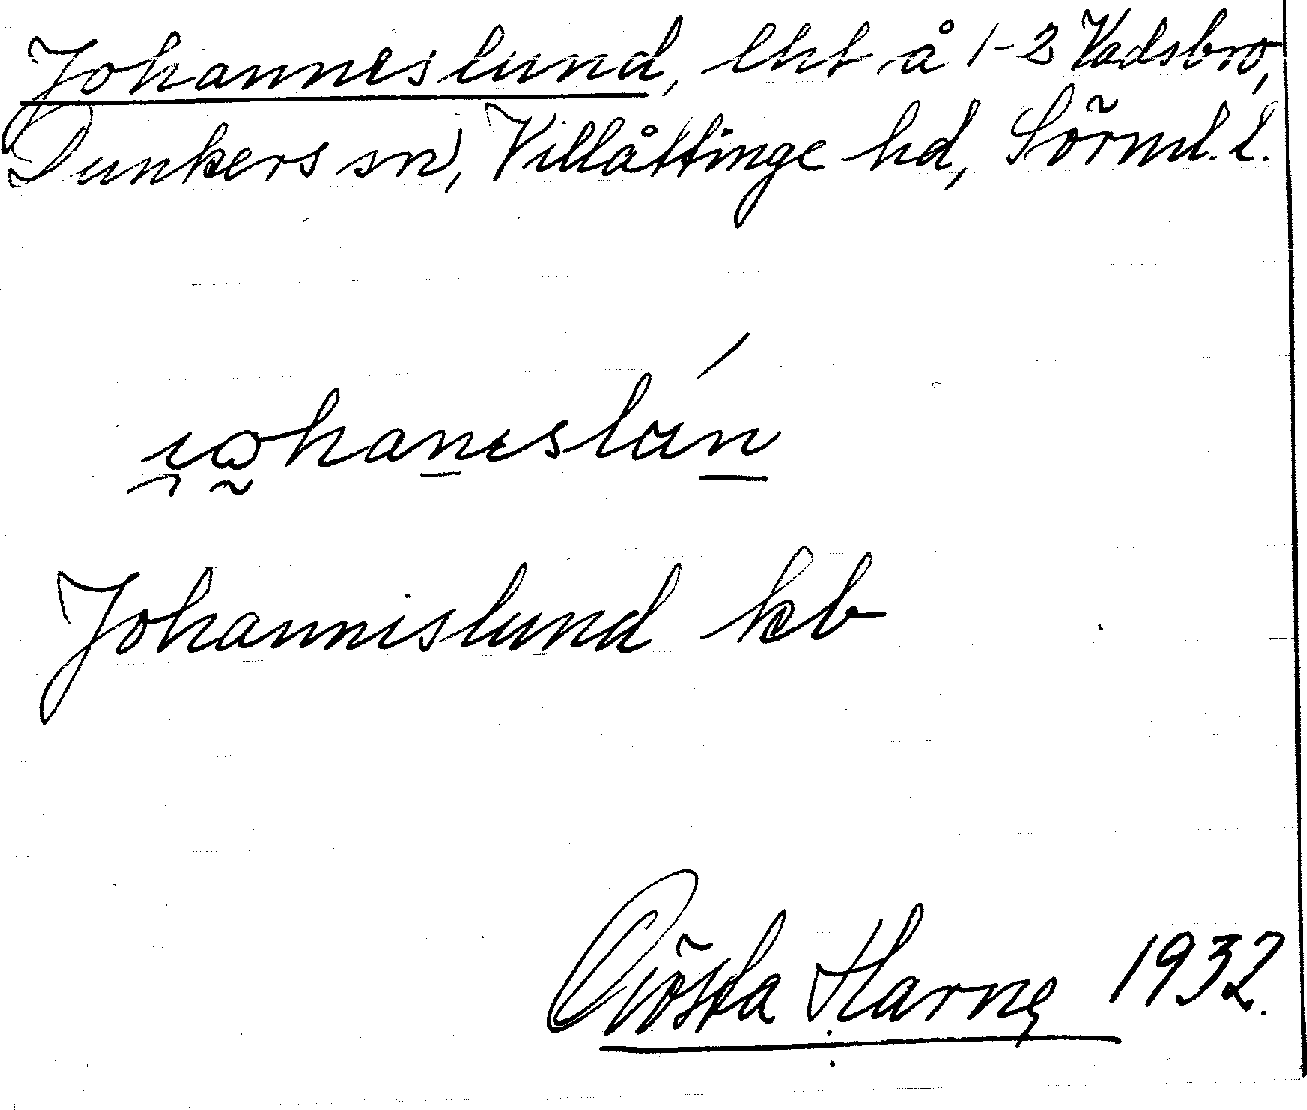 Johanneslund, lht å 1-2 Vadsbro,
Dunkers sn, Villåttinge hd, Sörml. l.
Johannislund kb
Gösta Harne 1932.